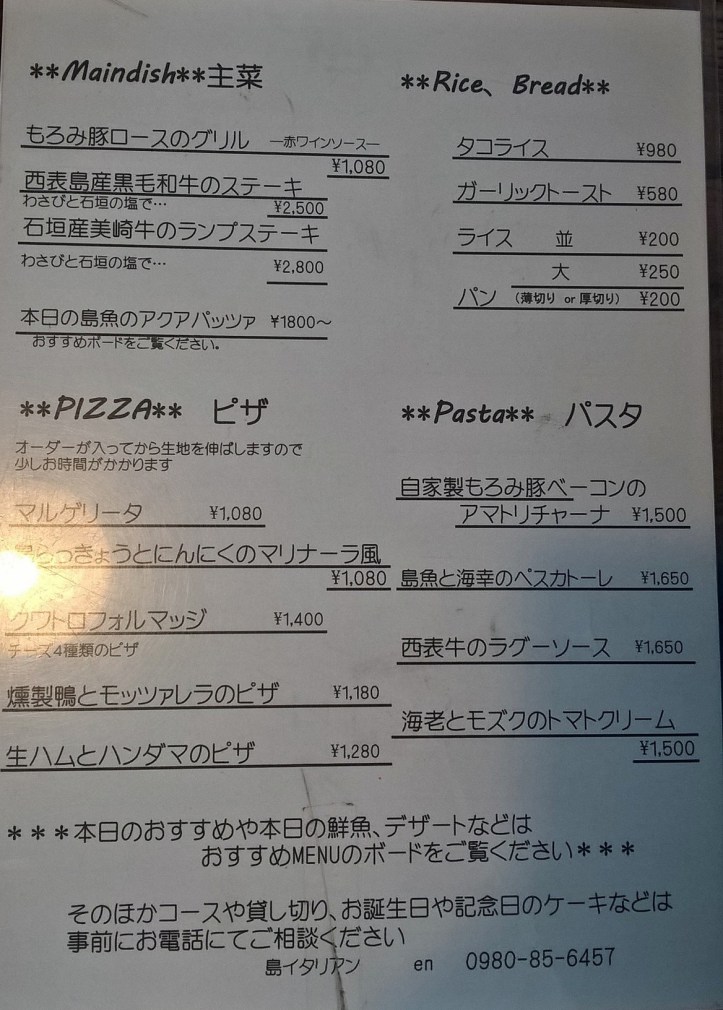 **Maindish**主菜
もろみ豚ロースのグリル ―赤ワインソース―
¥1,080
西表島産黒毛和牛のステーキ
わさびと石垣の塩で… ¥2,500
石垣産美崎牛のランプステーキ
わさびと石垣の塩で… ¥2,800
本日の島魚のアクアパッツァ ¥1800～
おすすめボードをご覧ください。
**Rice、Bread**
タコライス ¥980
ガーリックトースト ¥580
ライス 並 ¥200
大 ¥250
パン (薄切り or 厚切り) ¥200
**PIZZA** ピザ
オーダーが入ってから生地を伸ばしますので
少しお時間がかかります
マルゲリータ ¥1,080
らっきょうとにんにくのマリナーラ風
¥1,080
クワトロフォルマッジ ¥1,400
チーズ4種類のピザ
燻製鴨とモッツァレラのピザ ¥1,180
生ハムとハンダマのピザ ¥1,280
**Pasta** パスタ
自家製もろみ豚ベーコンの
アマトリチャーナ ¥1,500
島魚と海幸のペスカトーレ ¥1,650
西表牛のラグーソース ¥1,650
海老とモズクのトマトクリーム
¥1,500
***本日のおすすめや本日の鮮魚、デザートなどは
おすすめMENUのボードをご覧ください***
そのほかコースや貸し切り、お誕生日や記念日のケーキなどは
事前にお電話にてご相談ください
島イタリアン en 0980-85-6457